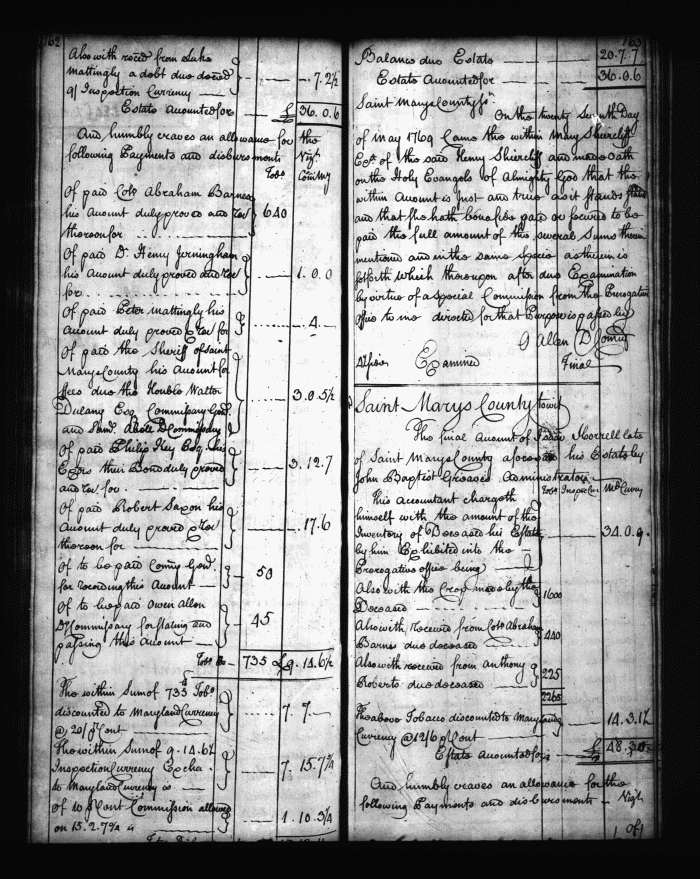 162
Also with reced from Luke
mattingly a debt due deced
℘ Inspection Currency — — . 7. 2½
Estate Accounted for — £ 36. 0. 6
And humbly craves an allowance for the
following Payments and disbursments
Tobo Curry
Of paid Colo Abraham Barnes
his Account duly proved and
thereon for 640
Of paid Dr. Henry Jerningham
his Account duly proved and
for 1. 0. 0
Of paid Peter mattingly his
Account duly proved & for . 4.
Of paid the Sheriff of Saint
Marys County his Account for
ffees due the Honble Walter
Dulany Esq. Commissary Genl.
and D Commissary 3. 0. 5½
Of paid Philip Key Esq. his
Exors their Bond duly proved
and for 3. 12. 7
Of paid Robert Saxon his
Account duly proved &
thereon for . 17. 6
Of to be paid Comry Genl.
for recording this Account — 50
Of to be paid Owen Allen
Dy Commissary for stating and
passing this Account — 45
Tobo 735 £9. 14. 6½
The within Sum of 735 Tobo
discounted to Maryland Currency
@ 20/ ℘ Cent — 7. 7.
The within Sum of 9. 14. 6½
Inspection Currency Excha.
to Maryland Currency is 7. 15. 7¾
Of ℘ Cent Commission allowed
on 15. 2. 7¾ is 1. 10. 3¼
163
Balance due Estate — 20. 7. 7
Estate Accounted for — 36. 0. 6
Saint Marys County ss.
On the twenty Day
of May 1769 Came the within Mary Shiercliff
Exx. of the said Henry Shiercliff and made oath
on the Holy Evangels of Almighty God that the
within Account is Just and true as it stands stated
and that she hath bonafide paid or secured to be
paid the full amount of the several Sums therein
mentioned and in the same Specie as therein is
setforth which thereupon after due Examination
by virtue of a Special Commission from the Prerogative
Office to me directed for that Purpose is passed by
Allen D Comry
Examined Final
Saint Marys County towit
The final Account of Horrell late
of Saint Marys County his Estate by
John Baptist Greaves Administrator
Tobo Inspection Md Curry
This Accountant chargeth
himself with the amount of the
Inventory of Deceased his Estate
by him Exhibited into the
Prerogative office being 34. 0. 9.
Also with the Crop made by the
Deceased 1600
Also with received from Colo Abraham
Barnes due deceased 440
Also with received from Anthony
Roberts due deceased 225
2265
The above Tobacco discounted to Maryland
Currency @ 12/6 ℘ Cent 14. 3. 1½
Estate Accounted for £ 48.
And humbly craves an allowance for the
following Payments and disbursments —